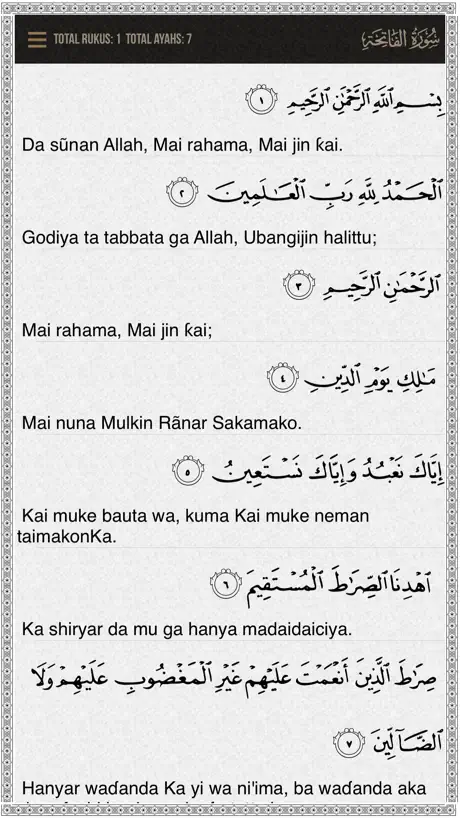 TOTAL RUKUS: 1 TOTAL AYAHS: 7
سُورَةُ الفَاتِحَةِ
بِسْمِ ٱللَّهِ ٱلرَّحْمَٰنِ ٱلرَّحِيمِ ١
Da sũnan Allah, Mai rahama, Mai jin ƙai.
ٱلْحَمْدُ لِلَّهِ رَبِّ ٱلْعَـٰلَمِينَ ٢
Godiya ta tabbata ga Allah, Ubangijin halittu;
ٱلرَّحْمَٰنِ ٱلرَّحِيمِ ٣
Mai rahama, Mai jin ƙai;
مَـٰلِكِ يَوْمِ ٱلدِّينِ ٤
Mai nuna Mulkin Rãnar Sakamako.
إِيَّاكَ نَعْبُدُ وَإِيَّاكَ نَسْتَعِينُ ٥
Kai muke bauta wa, kuma Kai muke neman
taimakonKa.
ٱهْدِنَا ٱلصِّرَٰطَ ٱلْمُسْتَقِيمَ ٦
Ka shiryar da mu ga hanya madaidaiciya.
صِرَٰطَ ٱلَّذِينَ أَنْعَمْتَ عَلَيْهِمْ غَيْرِ ٱلْمَغْضُوبِ عَلَيْهِمْ وَلَا
ٱلضَّآلِّينَ ٧
Hanyar waɗanda Ka yi wa ni'ima, ba waɗanda aka